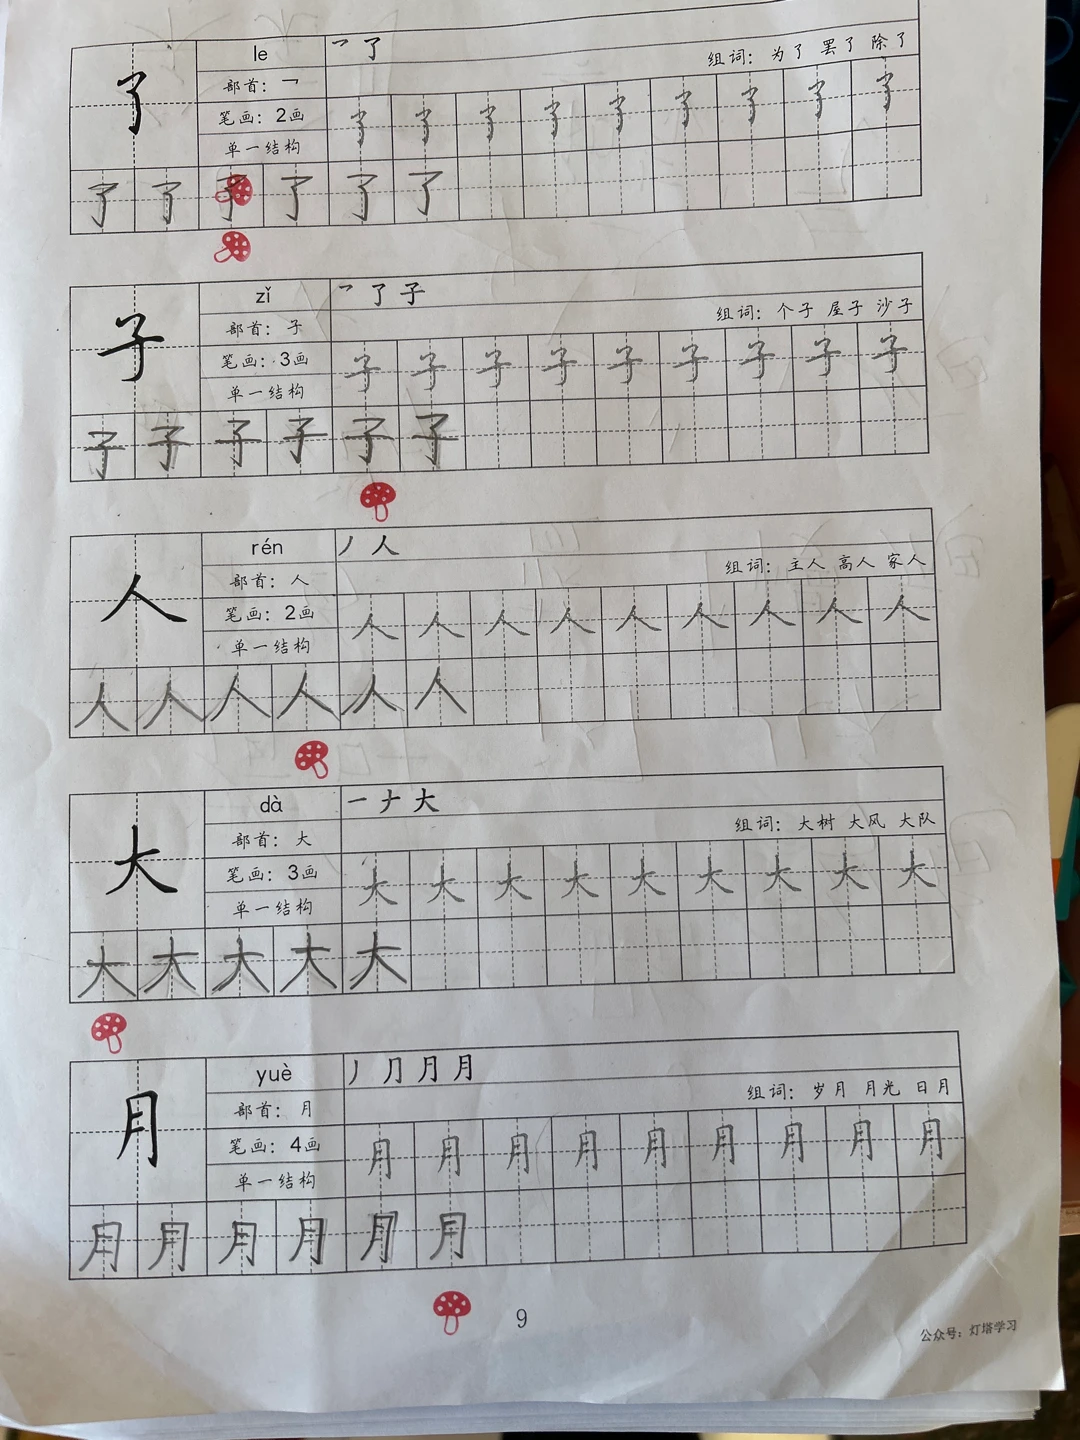 le
了
部首：乛
笔画：2画
单一结构
乛 了
组词：为了 罢了 除了
了 了 了 了 了 了 了 了 了
了 了 了 了 了 了
zǐ
子
部首：子
笔画：3画
单一结构
乛 了 子
组词：个子 屋子 沙子
子 子 子 子 子 子 子 子 子
子 子 子 子 子 子
rén
人
部首：人
笔画：2画
单一结构
丿 人
组词：主人 高人 家人
人 人 人 人 人 人 人 人 人
人 人 人 人 人 人
dà
大
部首：大
笔画：3画
单一结构
一 ナ 大
组词：大树 大风 大队
大 大 大 大 大 大 大 大 大
大 大 大 大 大
yuè
月
部首：月
笔画：4画
单一结构
丿 ⺆ 月 月
组词：岁月 月光 日月
月 月 月 月 月 月 月 月 月
月 月 月 月 月 月
9
公众号：灯塔学习